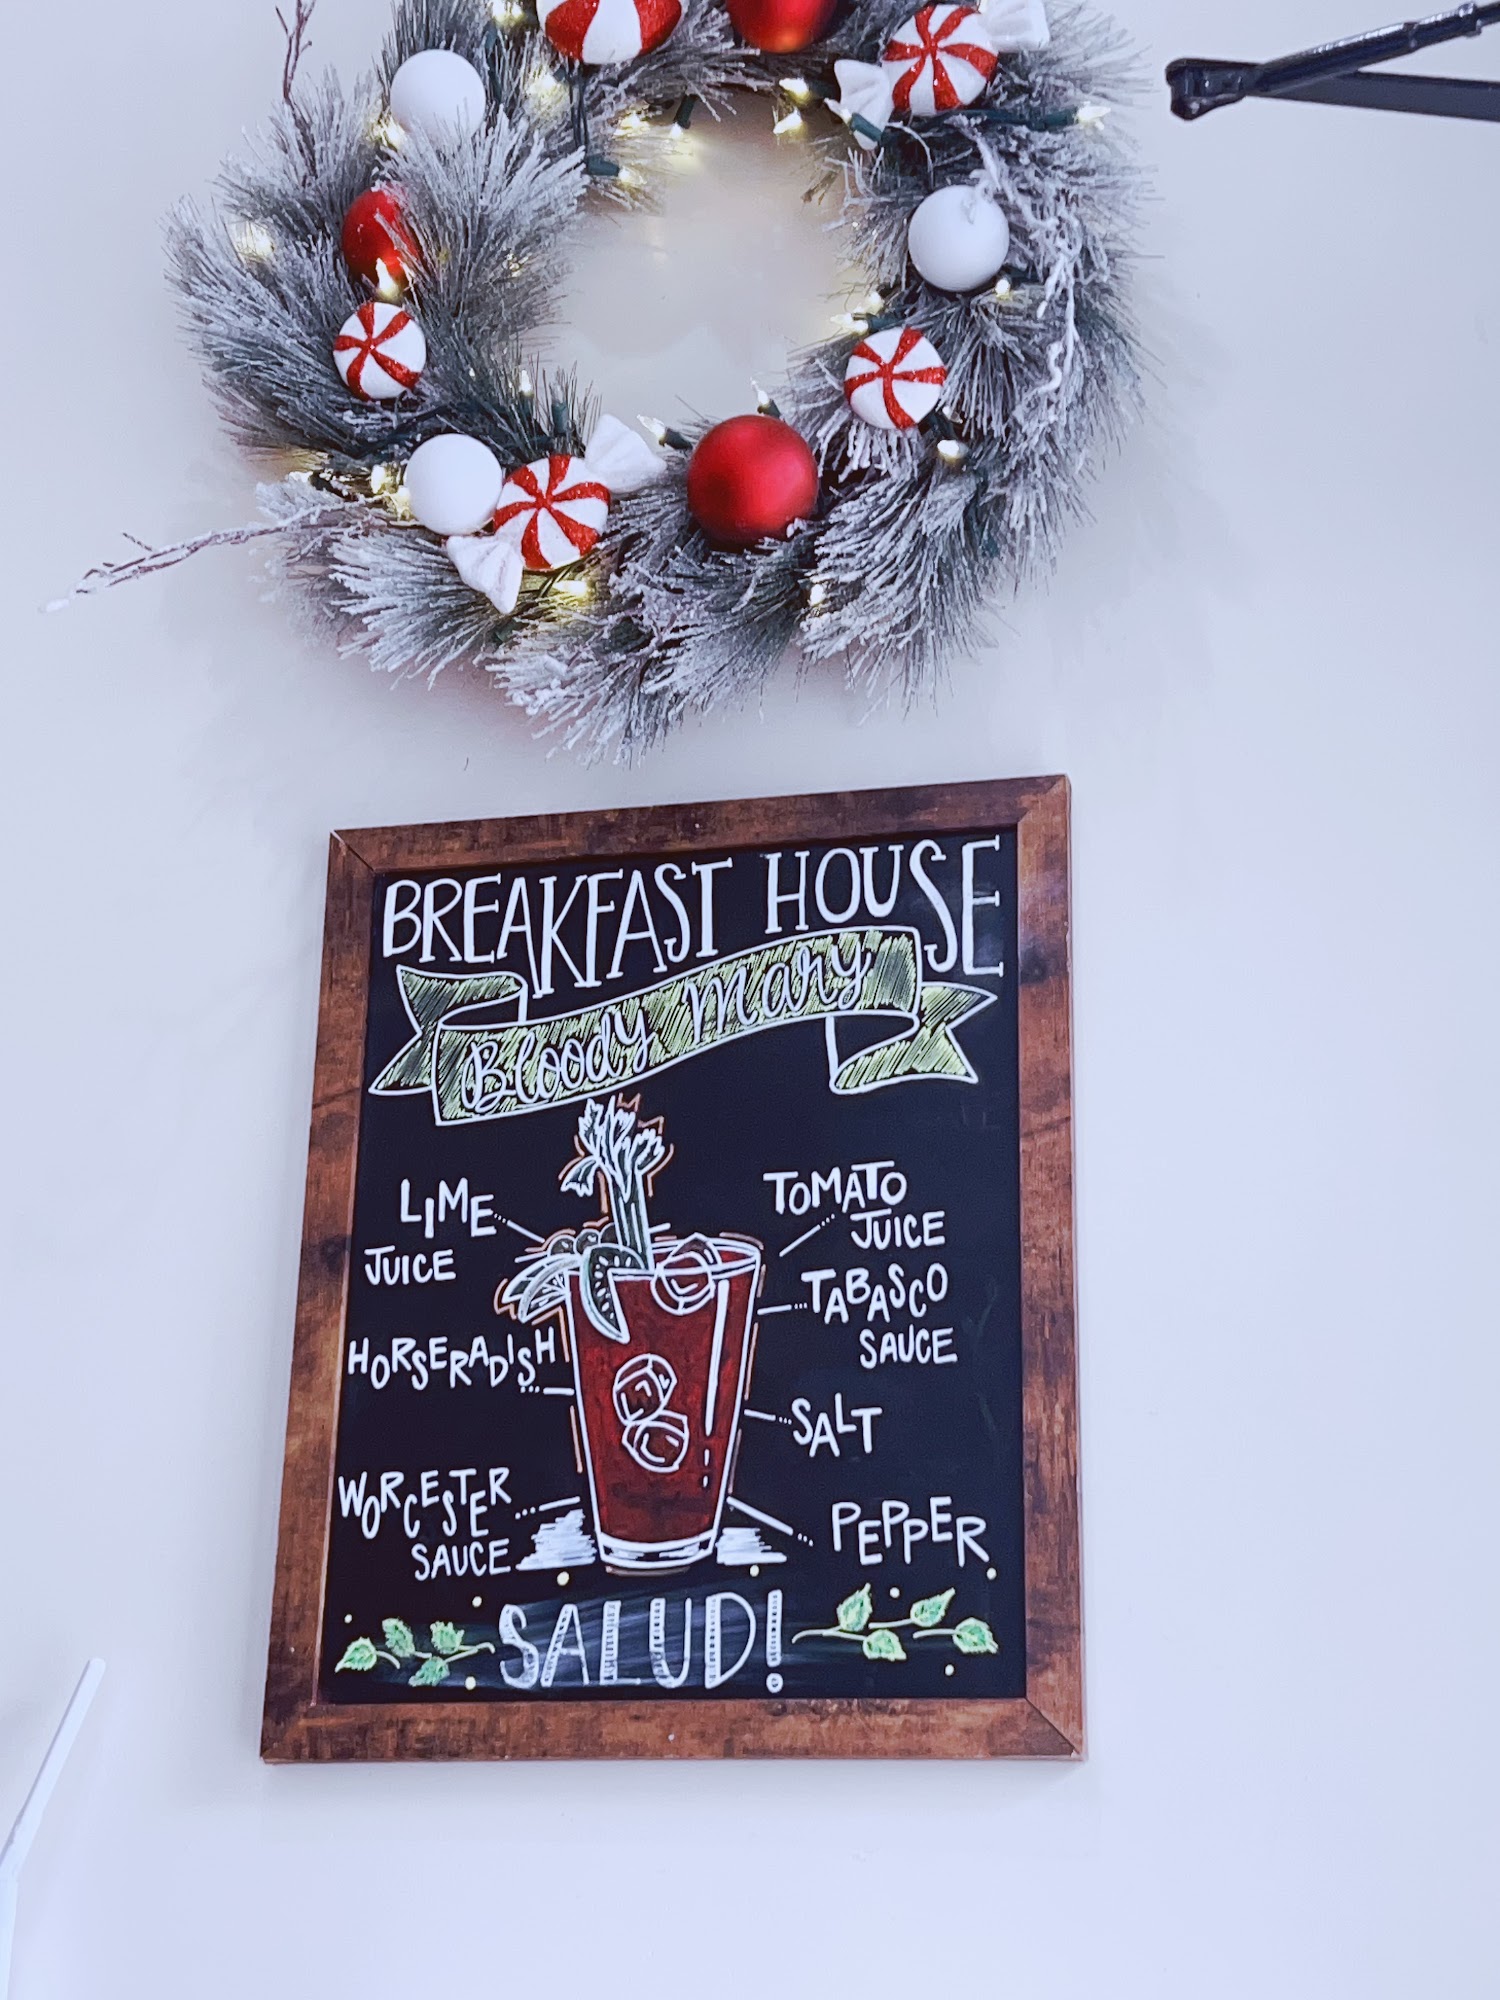 BREAKFAST HOUSE
Bloody Mary
LIME
JUICE
HORSERADISH
WORCESTER
SAUCE
TOMATO
JUICE
TABASCO
SAUCE
SALT
PEPPER
SALUD!